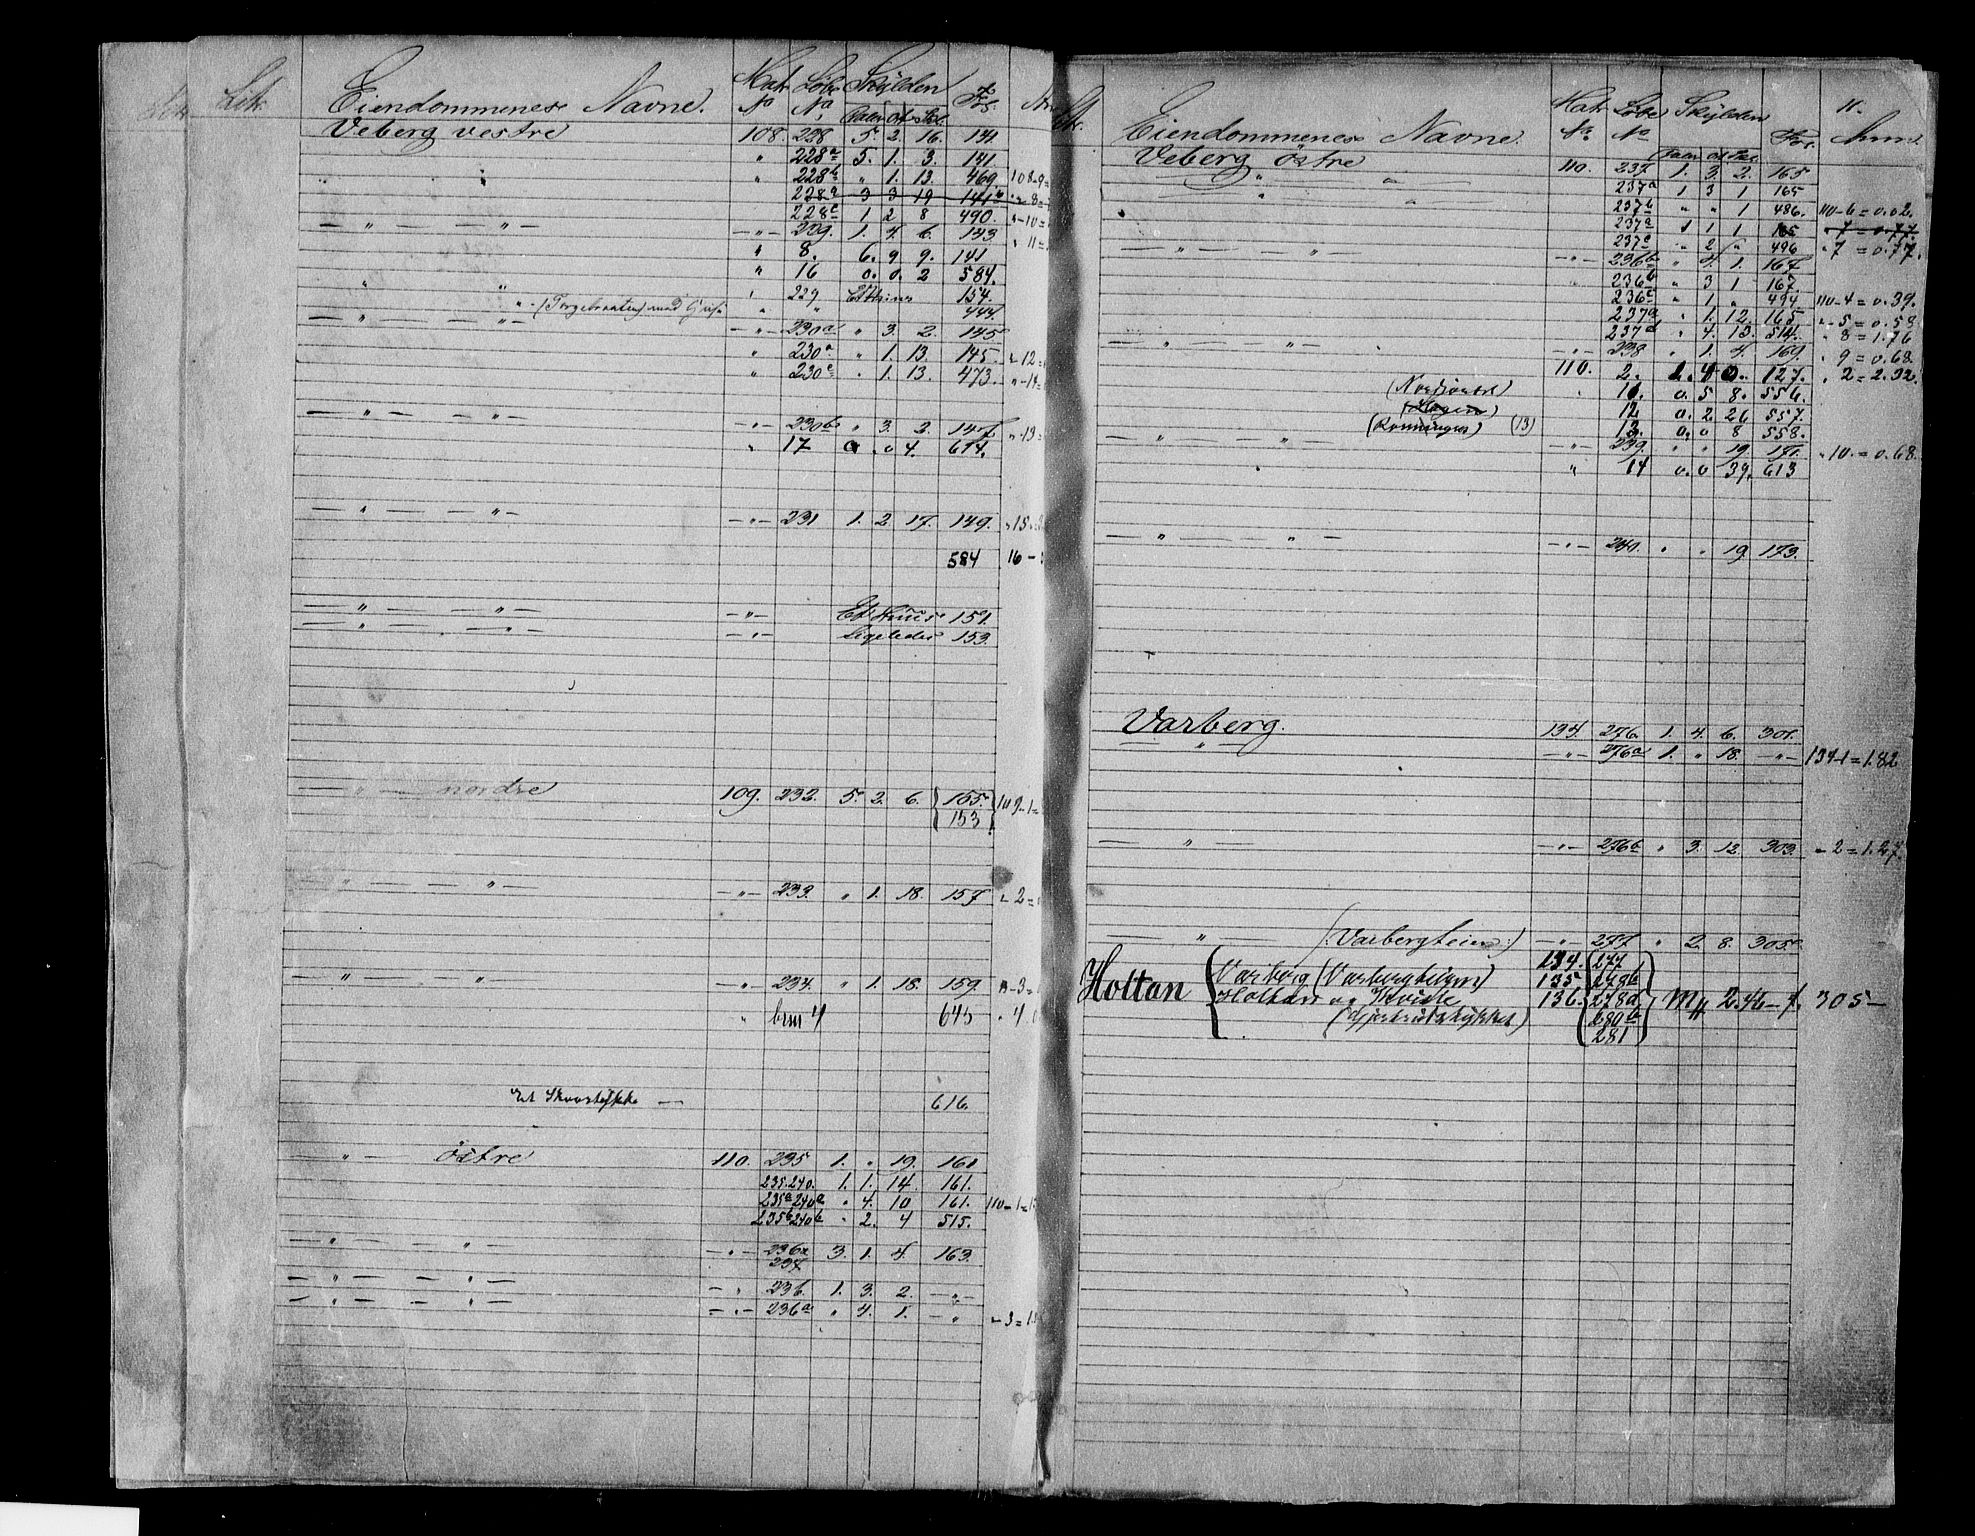 Litr. Eiendommenes Navne. Matr. No Løbe No Skylden Fol.
Daler Ort Skl.
Veberg vestre 108. 228 5 2 16. 141.
" " " 228a 5. 1. 3. 141
" 228b " 1. 13. 469. 108-9=
228a 3 3 19 141 " 8=
228c 1 2 8 490. "-10=
— " — — " — — " — 229. 1. 4. 6. 143. " 11=
" 8. 6. 9 9. 141
" 16 0. 0. 2 584.
" " " 229 Et Huus 154.
" " " 444.
— " — — " — — " — 230a " 3. 2. 145
" 230a " 1. 13. 145. " 12=
" 230c " 1. 13. 473. "-14=
— " — — " — — " — 230b " 3. 2. 147. "-13=
" 17 0 . 0 4. 614.
— " — — " — — " — 231 1. 2 17. 149. "15
584 16 -
— " — — " — — " — Et Huus 151.
— " — — " — — " — Ligeledes 153.
— " — nordre 109. 232. 5. 2. 6. {155. 109-1=
153}
— " — — " — — " — 233. " 1. 18. 157 "-2=
— " — — " — — " — 234. " 1. 18. 159 "-3=
" brn 4 645 " 4.
Et Skovstykke — 616.
— " — östre 110. 235 1. " 19. 161
235.240. 1. 1. 14. 161.
235a 240a " 4. 10 161. 110-1=1.
235b 240b " 2. 4 515.
— " — — " — — " — 236a 3. 1. 4. 163.
237
— " — — " — — " 236. 1. 3. 2. — " —
— " — — " — — " — 236a " 4. 1. — " "-3=1.
Litr. Eiendommenes Navne. Matr. No Løbe No Skylden Fol. 11.
Daler Ort Skl.
Veberg östre 110. 237. 1. 3. 2. 165
" " 237a 1 3 1 165
" " 237b " " 1 486. 110-6=0.02.
237a 1 1 1 165 " 7=0.77.
237c " 2 " 496 " 7=0.77.
— " — — " — — " — 236b " 4. 1. 167
236b " 3 1 167
236c " 1. " 494 110-4=0.39.
237a " 1. 12. 165 "-5=0.58
237d " 4. 13. 514. " 8=1.76
— " — — " — — " — 238 " 1. 4. 169. " 9=0.68.
110. 2. 1. 4 0. 127. " 2=2.32.
11. 0. 5 8. 556.
(Hagen) 12 0. 2. 26 557.
(Rønningen) (13) 13. 0. 0 8 558.
— " — — " — — " — 239. " " 19. 171. "10.=0.68.
" 14 0. 0 39. 613
— " — — " — — " — 240. " " 19. 173.
Varberg. 134. 276. 1. 4. 6. 301.
— " — — " — 276a 1. " 18. — " — 134-1=1.82
— " — — " — 276b " 3. 12. 303. "-2=1.27.
— " — (: Varbergteien :) — " — 277 " 2. 8. 305.
Holtan { Varberg (Varbergteien) 134. {277
Holthan og Kviste 135 278b
136. 278d } M# 2.46 — f. 305 —
280b
281